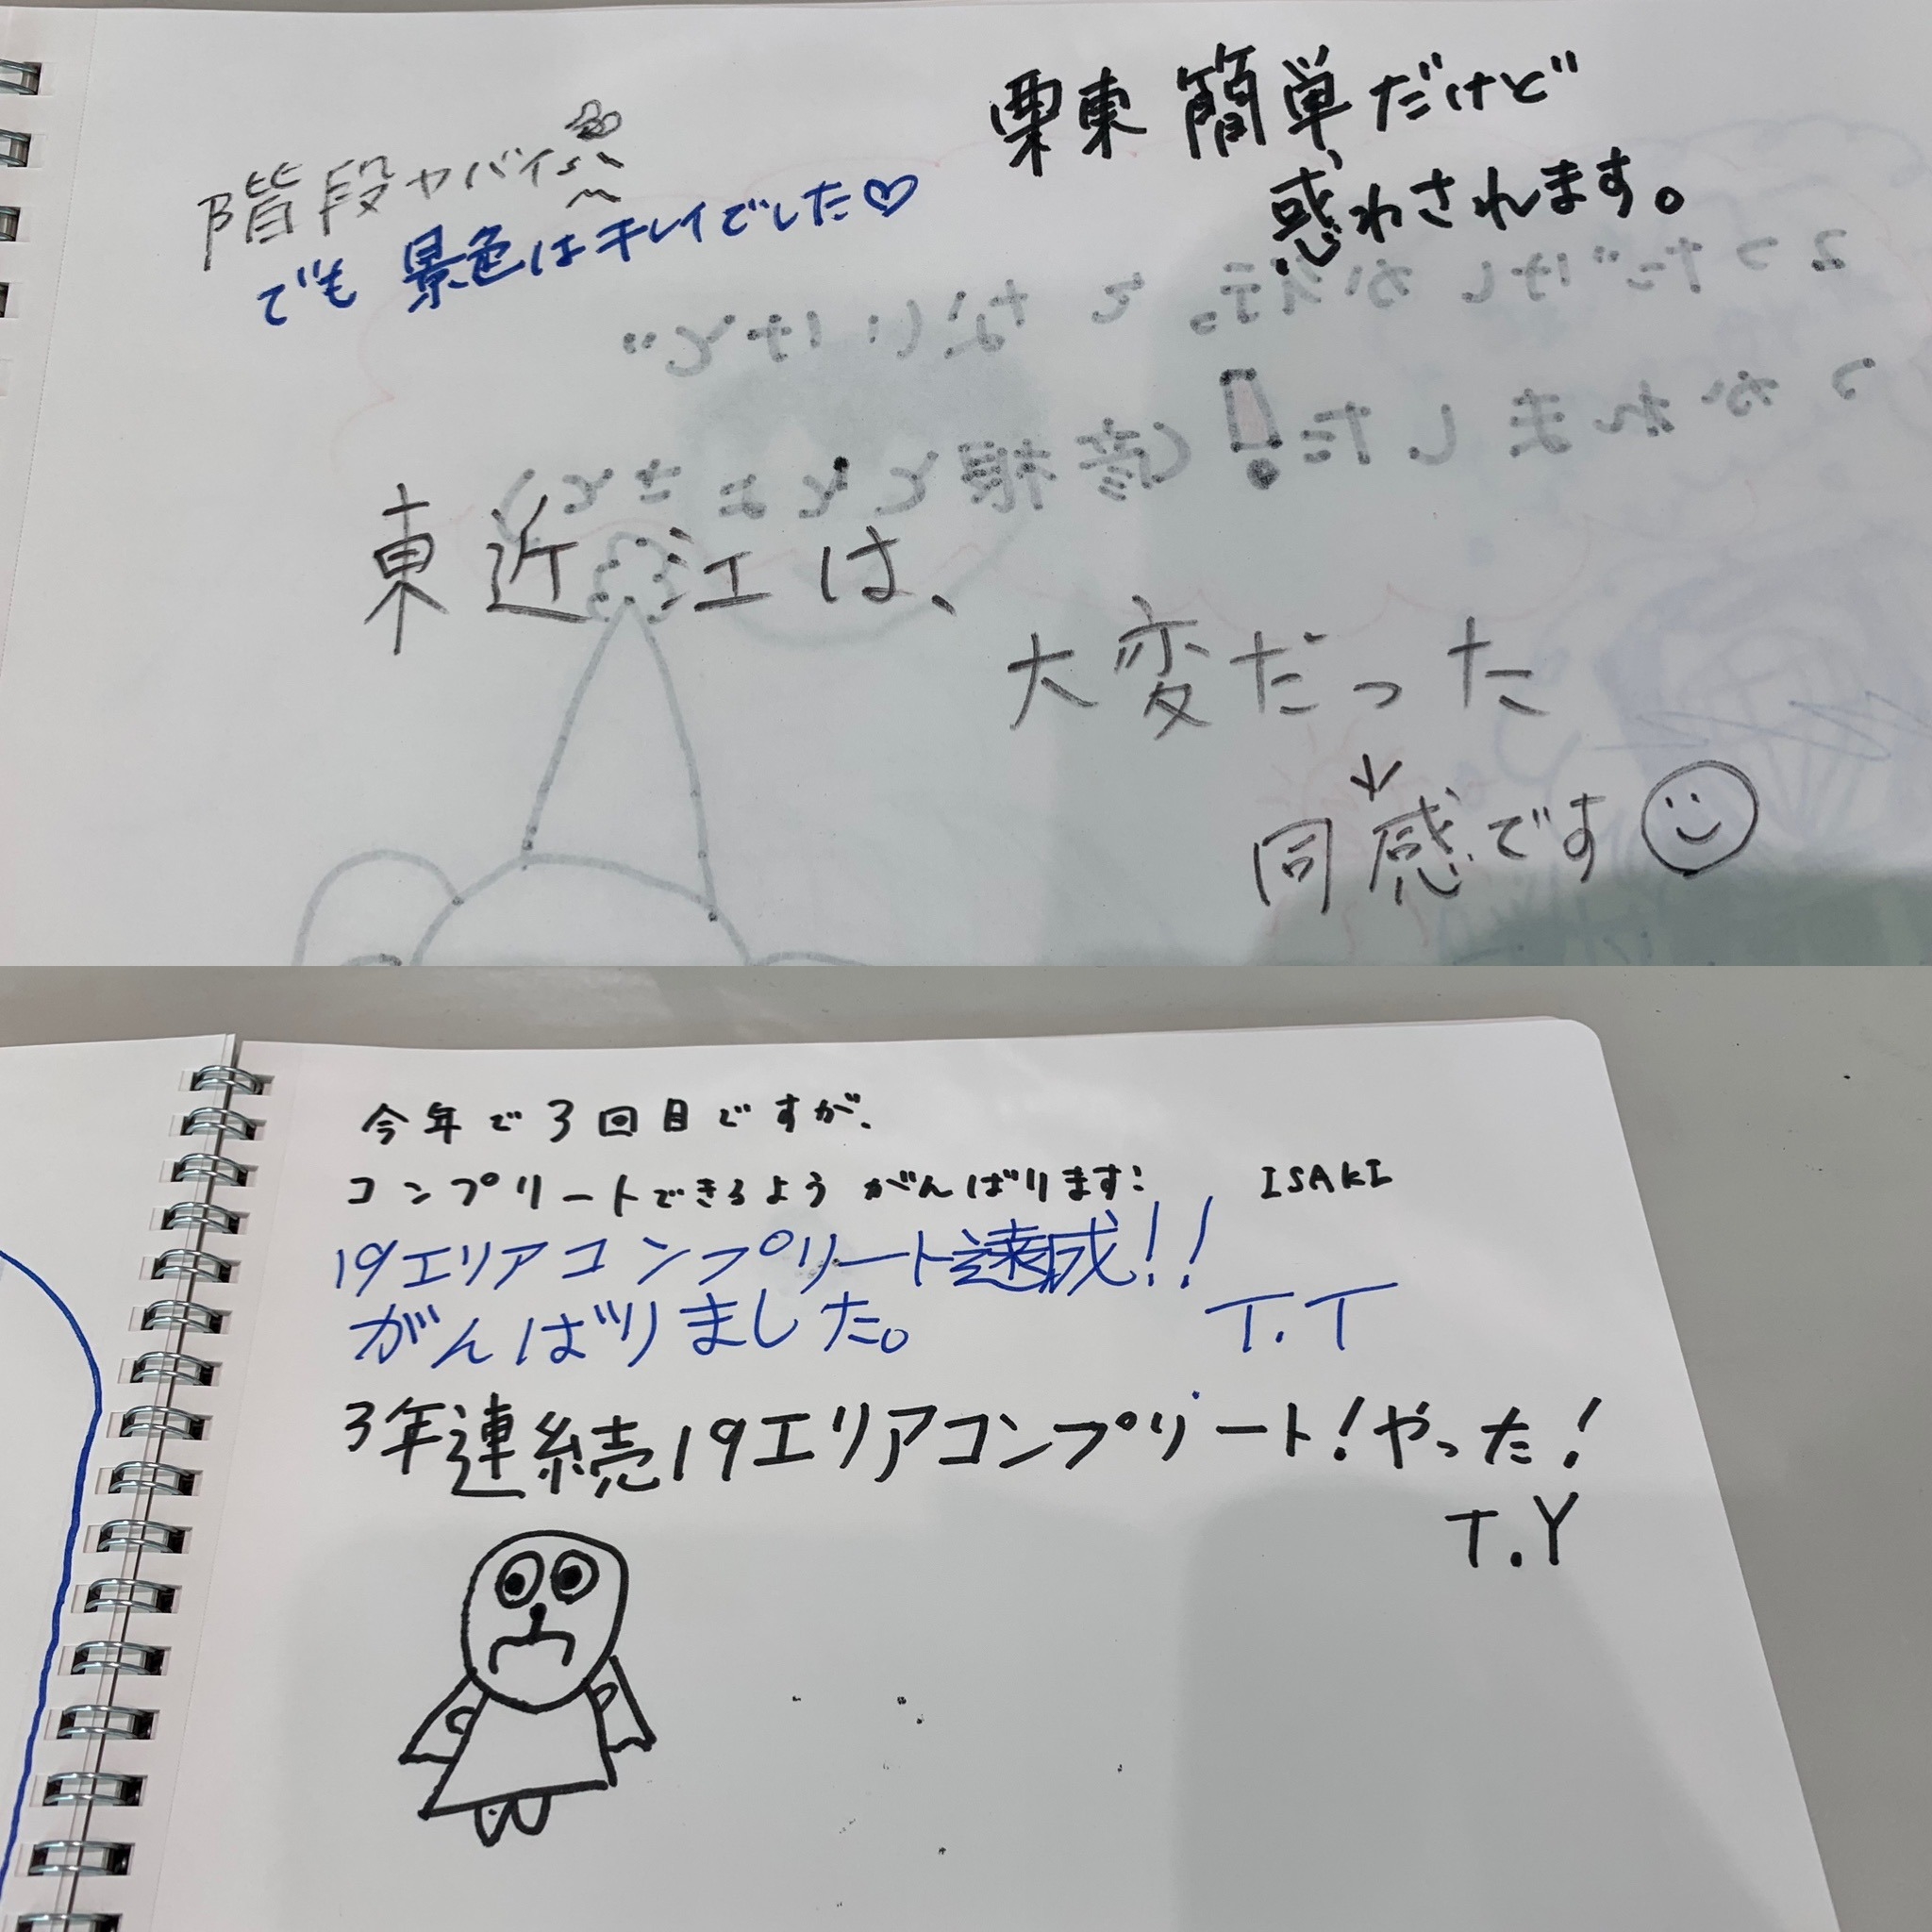 栗東 簡単だけど
惑わされます。
階段ヤバイ
でも 景色はキレイでした♡
2つだけしか行ってないけど
つかれました!(彦根ととよさと)
東近江は、
大変だった
↓
同感です
今年で3回目ですが、
コンプリートできるよう がんばります! ISAKI
19エリアコンプリート達成!!
がんばりました。 T.T
3年連続19エリアコンプリート!やった!
T.Y